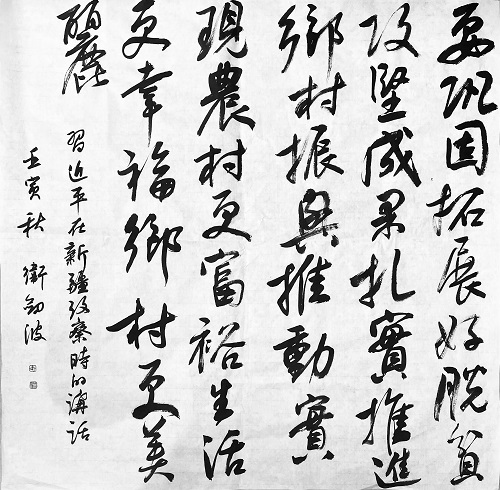 要巩固拓展好脱貧
攻堅成果扎實推進
鄉村振興推動實
現農村更富裕生活
更幸福鄉村更美
麗
習近平在新疆攷察時的講話
壬寅秋 衛劍波